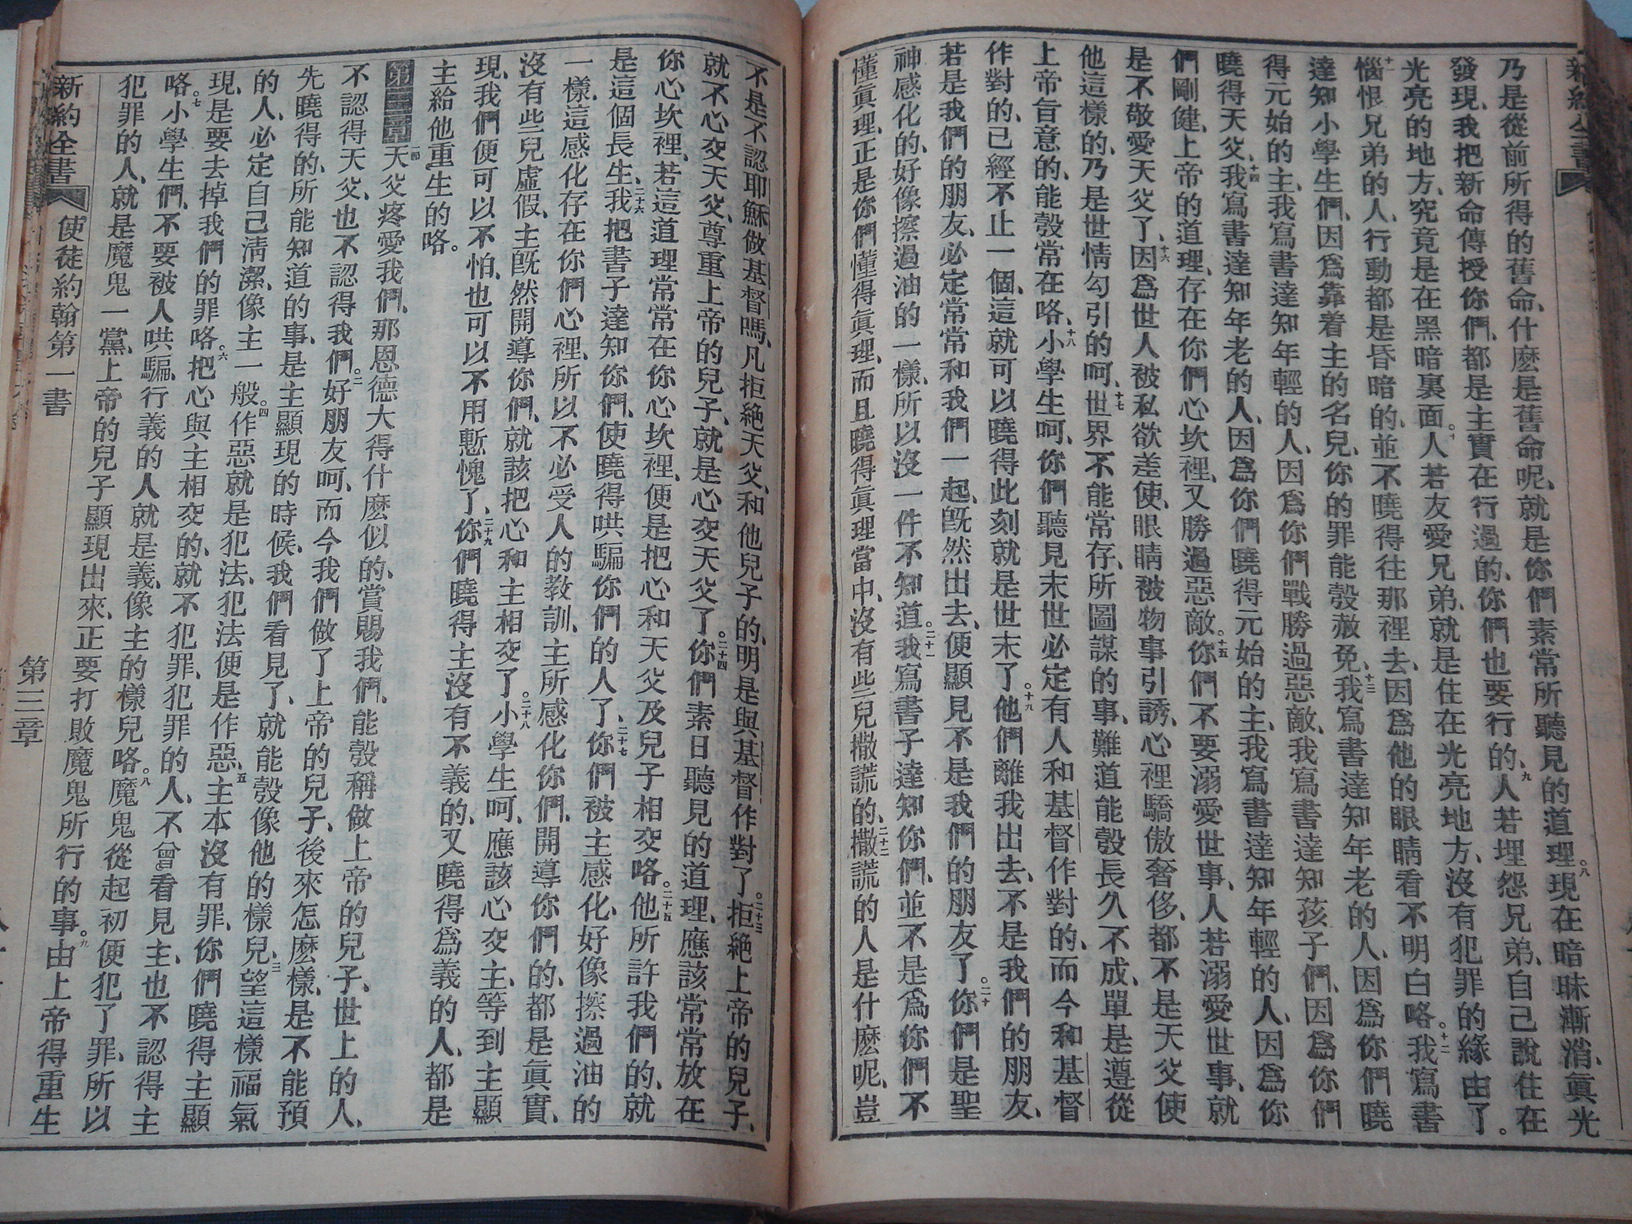 乃是從前所得的舊命、什麽是舊命呢、就是你們素常所聽見的道理。八現在暗昧漸消、眞光
發現、我把新命傳授你們、都是主實在行過的、你們也要行的、九人若埋怨兄弟、自己說住在
光亮的地方、究竟是在黑暗裏面。十人若友愛兄弟、就是住在光亮地方、沒有犯罪的緣由了。
十一惱恨兄弟的人、行動都是昏暗的、並不曉得往那裡去、因爲他的眼睛看不明白咯。十二我寫書
達知小學生們、因爲靠着主的名兒、你的罪能彀赦免、十三我寫書達知年老的人、因爲你們曉
得元始的主、我寫書達知年輕的人、因爲你們戰勝過惡敵、我寫書達知孩子們、因爲你們
曉得天父、十四我寫書達知年老的人、因爲你們曉得元始的主、我寫書達知年輕的人、因爲你
們剛健、上帝的道理、存在你們心坎裡、又勝過惡敵。十五你們不要溺愛世事、人若溺愛世事、就
是不敬愛天父了、十六因爲世人被私欲差使、眼睛被物事引誘、心裡驕傲奢侈、都不是天父使
他這樣的、乃是世情勾引的呵、十七世界不能常存、所圖謀的事、難道能彀長久不成、單是遵從
上帝旨意的、能彀常在咯、十八小學生呵、你們聽見末世必定有人和基督作對的、而今和基督
作對的、已經不止一個、這就可以曉得此刻就是世末了。十九他們離我出去、不是我們的朋友、
若是我們的朋友、必定常常和我們一起、旣然出去、便顯見不是我們的朋友了。二十你們是聖
神感化的、好像擦過油的一樣、所以沒一件不知道、二十一我寫書子達知你們、並不是爲你們不
懂眞理、正是你們懂得眞理、而且曉得眞理當中、沒有些兒撒謊的、二十二撒謊的人是什麽呢、豈
不是不認耶穌做基督嗎、凡拒絶天父、和他兒子的、明是與基督作對了。二十三拒絶上帝的兒子、
就不心交天父、尊重上帝的兒子、就是心交天父了。二十四你們素日聽見的道理、應該常常放在
你心坎裡、若這道理常常在你心坎裡、便是把心和天父及兒子相交咯。二十五他所許我們的、就
是這個長生、二十六我把書子達知你們、使曉得哄騙你們的人了、二十七你們被主感化、好像擦過油的
一樣、這感化存在你們心裡、所以不必受人的教訓、主所感化你們、開導你們的、都是眞實、
沒有些兒虛假、主旣然開導你們、就該把心和主相交了。二十八小學生呵、應該心交主、等到主顯
現、我們便可以不怕、也可以不用慙愧了、二十九你們曉得主沒有不義的、又曉得爲義的人、都是
主給他重生的咯。
第三章 一天父疼愛我們、那恩德大得什麽似的、賞賜我們、能彀稱做上帝的兒子、世上的人、
不認得天父、也不認得我們。二好朋友呵、而今我們做了上帝的兒子、後來怎麽樣、是不能預
先曉得的、所能知道的事、是主顯現的時候、我們看見了、就能彀像他的樣兒、三望這樣福氣
的人、必定自己淸潔、像主一般。四作惡就是犯法、犯法便是作惡、五主本沒有罪、你們曉得主顯
現、是要去掉我們的罪咯。六把心與主相交的、就不犯罪、犯罪的人、不曾看見主、也不認得主
咯。七小學生們、不要被人哄騙、行義的人就是義、像主的樣兒咯。八魔鬼從起初便犯了罪、所以
犯罪的人、就是魔鬼一黨、上帝的兒子顯現出來、正要打敗魔鬼所行的事。九由上帝得重生
新約全書 使徒約翰第一書 第三章